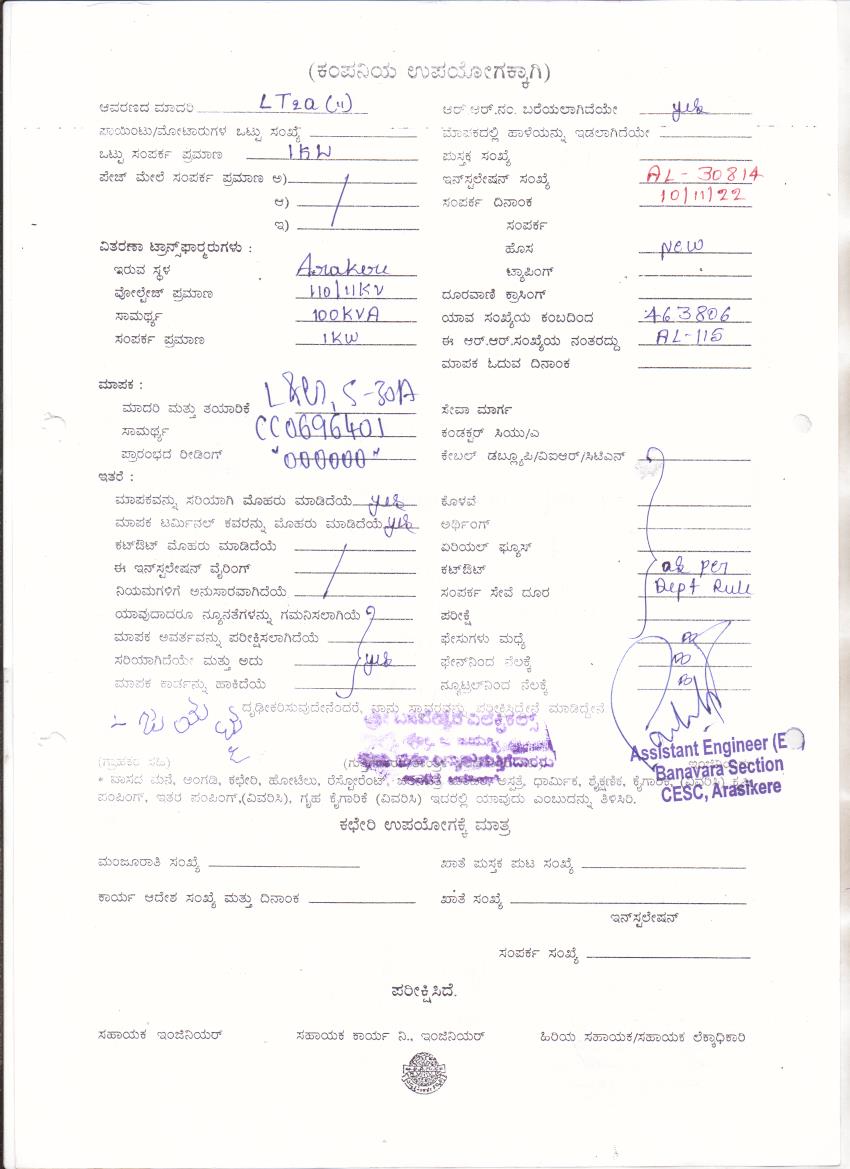 (ಕಂಪನಿಯ ಉಪಯೋಗಕ್ಕಾಗಿ)
ಆವರಣದ ಮಾದರಿ LT2a (ii) ಆರ್.ಆರ್.ನಂ. ಬರೆಯಲಾಗಿದೆಯೇ yes
ಪಾಯಿಂಟು/ಮೋಟಾರುಗಳ ಒಟ್ಟು ಸಂಖ್ಯೆ ಮಾಪಕದಲ್ಲಿ ಹಾಳೆಯನ್ನು ಇಡಲಾಗಿದೆಯೇ
ಒಟ್ಟು ಸಂಪರ್ಕ ಪ್ರಮಾಣ 1KW ಪುಸ್ತಕ ಸಂಖ್ಯೆ
ಪೇಜ್ ಮೇಲೆ ಸಂಪರ್ಕ ಪ್ರಮಾಣ ಅ) ಇನ್‌ಸ್ಟಲೇಷನ್ ಸಂಖ್ಯೆ AL-30814
ಆ) ಸಂಪರ್ಕ ದಿನಾಂಕ 10/11/22
ಇ) ಸಂಪರ್ಕ
ವಿತರಣಾ ಟ್ರಾನ್ಸ್‌ಫಾರ್ಮರುಗಳು : ಹೊಸ New
ಇರುವ ಸ್ಥಳ Arakere ಟ್ಯಾಪಿಂಗ್
ವೋಲ್ಟೇಜ್ ಪ್ರಮಾಣ 110/11KV ದೂರವಾಣಿ ಕ್ರಾಸಿಂಗ್
ಸಾಮರ್ಥ್ಯ 100KVA ಯಾವ ಸಂಖ್ಯೆಯ ಕಂಬದಿಂದ 463806
ಸಂಪರ್ಕ ಪ್ರಮಾಣ 1KW ಈ ಆರ್.ಆರ್.ಸಂಖ್ಯೆಯ ನಂತರದ್ದು AL-115
ಮಾಪಕ ಓದುವ ದಿನಾಂಕ
ಮಾಪಕ :
ಮಾದರಿ ಮತ್ತು ತಯಾರಿಕೆ 5-30A ಸೇವಾ ಮಾರ್ಗ
ಸಾಮರ್ಥ್ಯ CC0696401 ಕಂಡಕ್ಟರ್ ಸಿಯು/ಎ
ಪ್ರಾರಂಭದ ರೀಡಿಂಗ್ "000000" ಕೇಬಲ್ ಡಬ್ಲ್ಯೂಪಿ/ವಿಐಆರ್/ಸಿಟಿಎನ್
ಇತರೆ :
ಮಾಪಕವನ್ನು ಸರಿಯಾಗಿ ಮೊಹರು ಮಾಡಿದೆಯೆ yes ಕೊಳವೆ
ಮಾಪಕ ಟರ್ಮಿನಲ್ ಕವರನ್ನು ಮೊಹರು ಮಾಡಿದೆಯೆ yes ಅರ್ಥಿಂಗ್
ಕಟ್‌ಔಟ್ ಮೊಹರು ಮಾಡಿದೆಯೆ ಏರಿಯಲ್ ಫ್ಯೂಸ್
ಈ ಇನ್‌ಸ್ಟಲೇಷನ್ ವೈರಿಂಗ್ ಕಟ್‌ಔಟ್ as per
ನಿಯಮಗಳಿಗೆ ಅನುಸಾರವಾಗಿದೆಯೆ ಸಂಪರ್ಕ ಸೇವೆ ದೂರ Dept Rule
ಯಾವುದಾದರೂ ನ್ಯೂನತೆಗಳನ್ನು ಗಮನಿಸಲಾಗಿಯೆ ಪರೀಕ್ಷೆ
ಮಾಪಕ ಅವರ್ತವನ್ನು ಪರೀಕ್ಷಿಸಲಾಗಿದೆಯೆ ಫೇಸುಗಳು ಮಧ್ಯೆ
ಸರಿಯಾಗಿದೆಯೇ ಮತ್ತು ಅದು yes ಫೇನ್‌ನಿಂದ ನೆಲಕ್ಕೆ
ಮಾಪಕ ಕಾರ್ಡನ್ನು ಹಾಕಿದೆಯೆ ನ್ಯೂಟ್ರಲ್‌ನಿಂದ ನೆಲಕ್ಕೆ
ದೃಢೀಕರಿಸುವುದೇನೆಂದರೆ, ನಾನು ಸ್ಥಾವರವನ್ನು ಪರೀಕ್ಷಿಸಿದ್ದೇನೆ ಮಾಡಿದ್ದೇನೆ
(ಗ್ರಾಹಕರ ಸಹಿ)
Assistant Engineer (E
Banavara Section
CESC, Arasikere
* ವಾಸದ ಮನೆ, ಅಂಗಡಿ, ಕಛೇರಿ, ಹೋಟೆಲು, ರೆಸ್ಟೋರೆಂಟ್, ಆಸ್ಪತ್ರೆ, ಧಾರ್ಮಿಕ, ಶೈಕ್ಷಣಿಕ, ಕೈಗಾರಿಕೆ, (ವಿವರಿಸಿ)
ಪಂಪಿಂಗ್, ಇತರ ಪಂಪಿಂಗ್,(ವಿವರಿಸಿ), ಗೃಹ ಕೈಗಾರಿಕೆ (ವಿವರಿಸಿ) ಇದರಲ್ಲಿ ಯಾವುದು ಎಂಬುದನ್ನು ತಿಳಿಸಿರಿ.
ಕಛೇರಿ ಉಪಯೋಗಕ್ಕೆ ಮಾತ್ರ
ಮಂಜೂರಾತಿ ಸಂಖ್ಯೆ ಖಾತೆ ಪುಸ್ತಕ ಪುಟ ಸಂಖ್ಯೆ
ಕಾರ್ಯ ಆದೇಶ ಸಂಖ್ಯೆ ಮತ್ತು ದಿನಾಂಕ ಖಾತೆ ಸಂಖ್ಯೆ
ಇನ್‌ಸ್ಟಲೇಷನ್
ಸಂಪರ್ಕ ಸಂಖ್ಯೆ
ಪರೀಕ್ಷಿಸಿದೆ.
ಸಹಾಯಕ ಇಂಜಿನಿಯರ್ ಸಹಾಯಕ ಕಾರ್ಯ ನಿ., ಇಂಜಿನಿಯರ್ ಹಿರಿಯ ಸಹಾಯಕ/ಸಹಾಯಕ ಲೆಕ್ಕಾಧಿಕಾರಿ